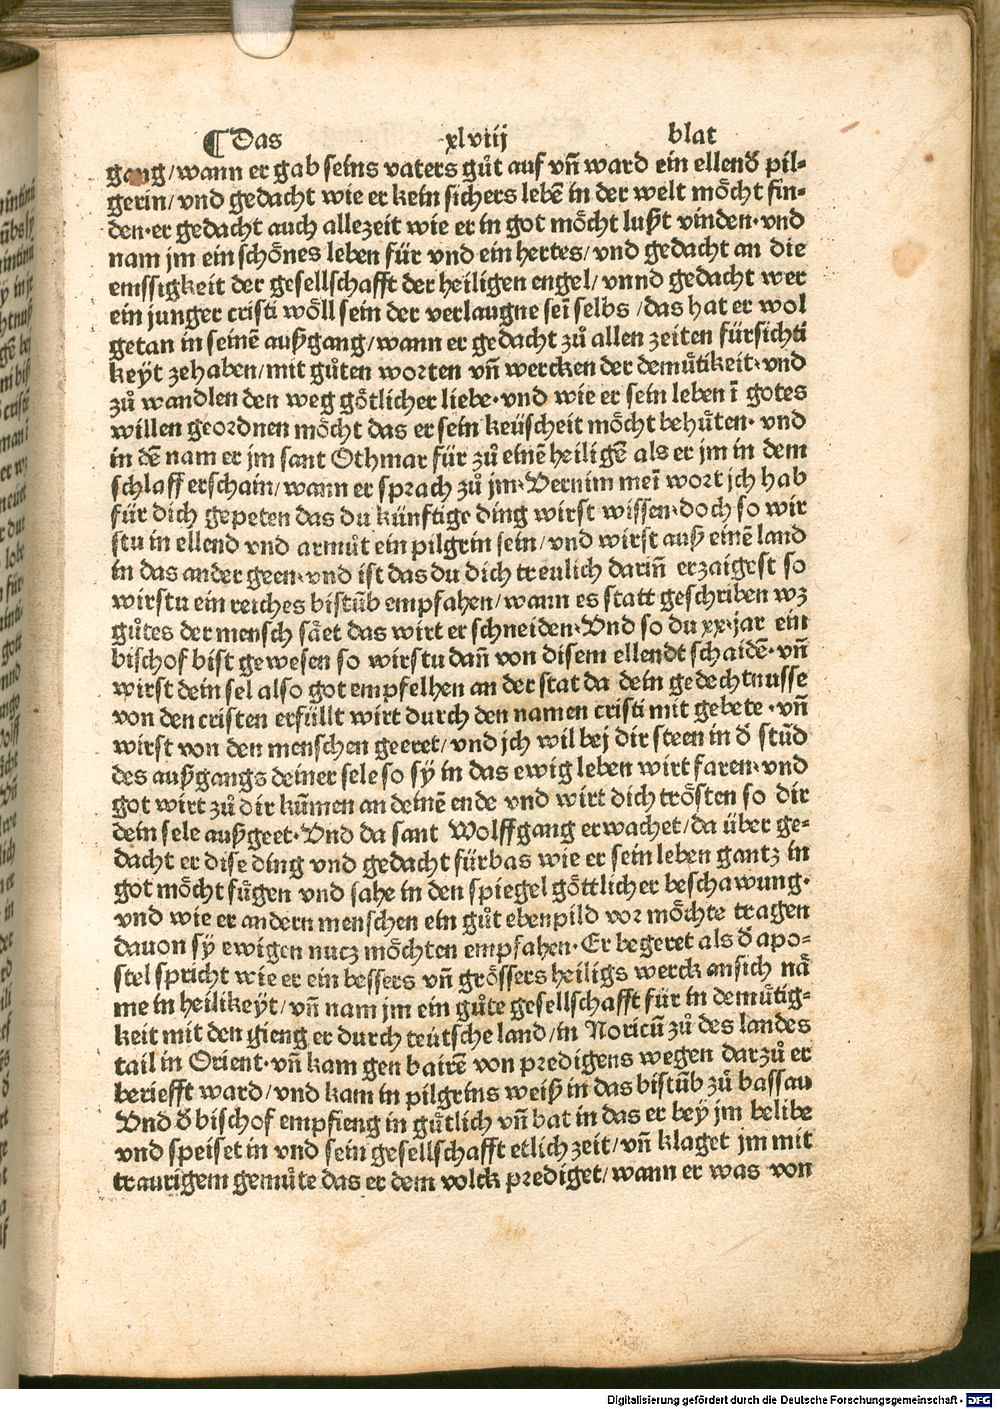 ¶Das xlviij blat
gang/wann er gab seins vaters gůt auf vñ ward ein ellend̕ pil⸗
gerin/vnd gedacht wie er kein sichers lebẽ in der welt möcht fin⸗
den·er gedacht auch allezeit wie er in got möcht lußt vinden·vnd
nam jm ein schönes leben für vnd ein hertes/vnd gedacht an die
emssigkeit der gesellschafft der heiligen engel/vnnd gedacht wer
ein junger cristi wöll sein der verlaugne seĩ selbs/das hat er wol
getan in seinẽ außgang/wann er gedacht zů allen zeiten fürsichti
keÿt zehaben/mit gůten worten vñ wercken der demůtikeit·vnd
zů wandlen den weg götlicher liebe·vnd wie er sein leben ĩ gotes
willen geordnen möcht das er sein keüscheit möcht behůten·vnd
in dẽ nam er jm sant Othmar für zů einẽ heiligẽ als er jm in dem
schlaff erschain/wann er sprach zů jm·Vernim meĩ wort jch hab
für dich gepeten das du künftige ding wirst wissen·doch so wir
stu in ellend vnd armůt ein pilgrin sein/vnd wirst auß einẽ land
in das ander geen·vnd ist das du dich treulich dariñ erzaigest so
wirstu ein reiches bistũb empfahen/wann es statt geschriben wz
gůtes der mensch säet das wirt er schneiden·Vnd so du xx·jar ein
bischof bist gewesen so wirstu dañ von disem ellendt schaidẽ·vñ
wirst dein sel also got empfelhen an der stat da dein gedechtnusse
von den cristen erfüllt wirt durch den namen cristi mit gebete·vñ
wirst von den menschen geeret/vnd jch wil bej dir steen in d̕ stũd
des außgangs deiner sele so sÿ in das ewig leben wirt faren·vnd
got wirt zů dir kũmen an deinẽ ende vnd wirt dich trösten so dir
dein sele außgeet·Vnd da sant Wolffgang erwachet/da über ge⸗
dacht er dise ding vnd gedacht fürbas wie er sein leben gantz in
got möcht fůgen vnd sahe in den spiegel göttlicher beschawung·
vnd wie er andern menschen ein gůt ebenpild vor möchte tragen
dauon sÿ ewigen nucz möchten empfahen·Er begeret als d̕ apo⸗
stel spricht wie er ein bessers vñ grössers heiligs werck an sich nä
me in heilikeÿt/vñ nam jm ein gůte gesellschafft für in demůtig⸗
keit mit den gieng er durch teütsche land/in Noricũ zů des landes
tail in Orient·vñ kam gen bairẽ von predigens wegen darzů er
berüefft ward/vnd kam in pilgrins weiß in das bistũb zů bassau
Vnd d̕ bischof empfieng in gůtlich vñ bat in das er beÿ jm belibe
vnd speiset in vnd sein gesellschafft etlich zeit/vñ klaget jm mit
traurigem gemůte das er dem volck prediget/wann er was von
Digitalisierung gefördert durch die Deutsche Forschungsgemeinschaft - DFG